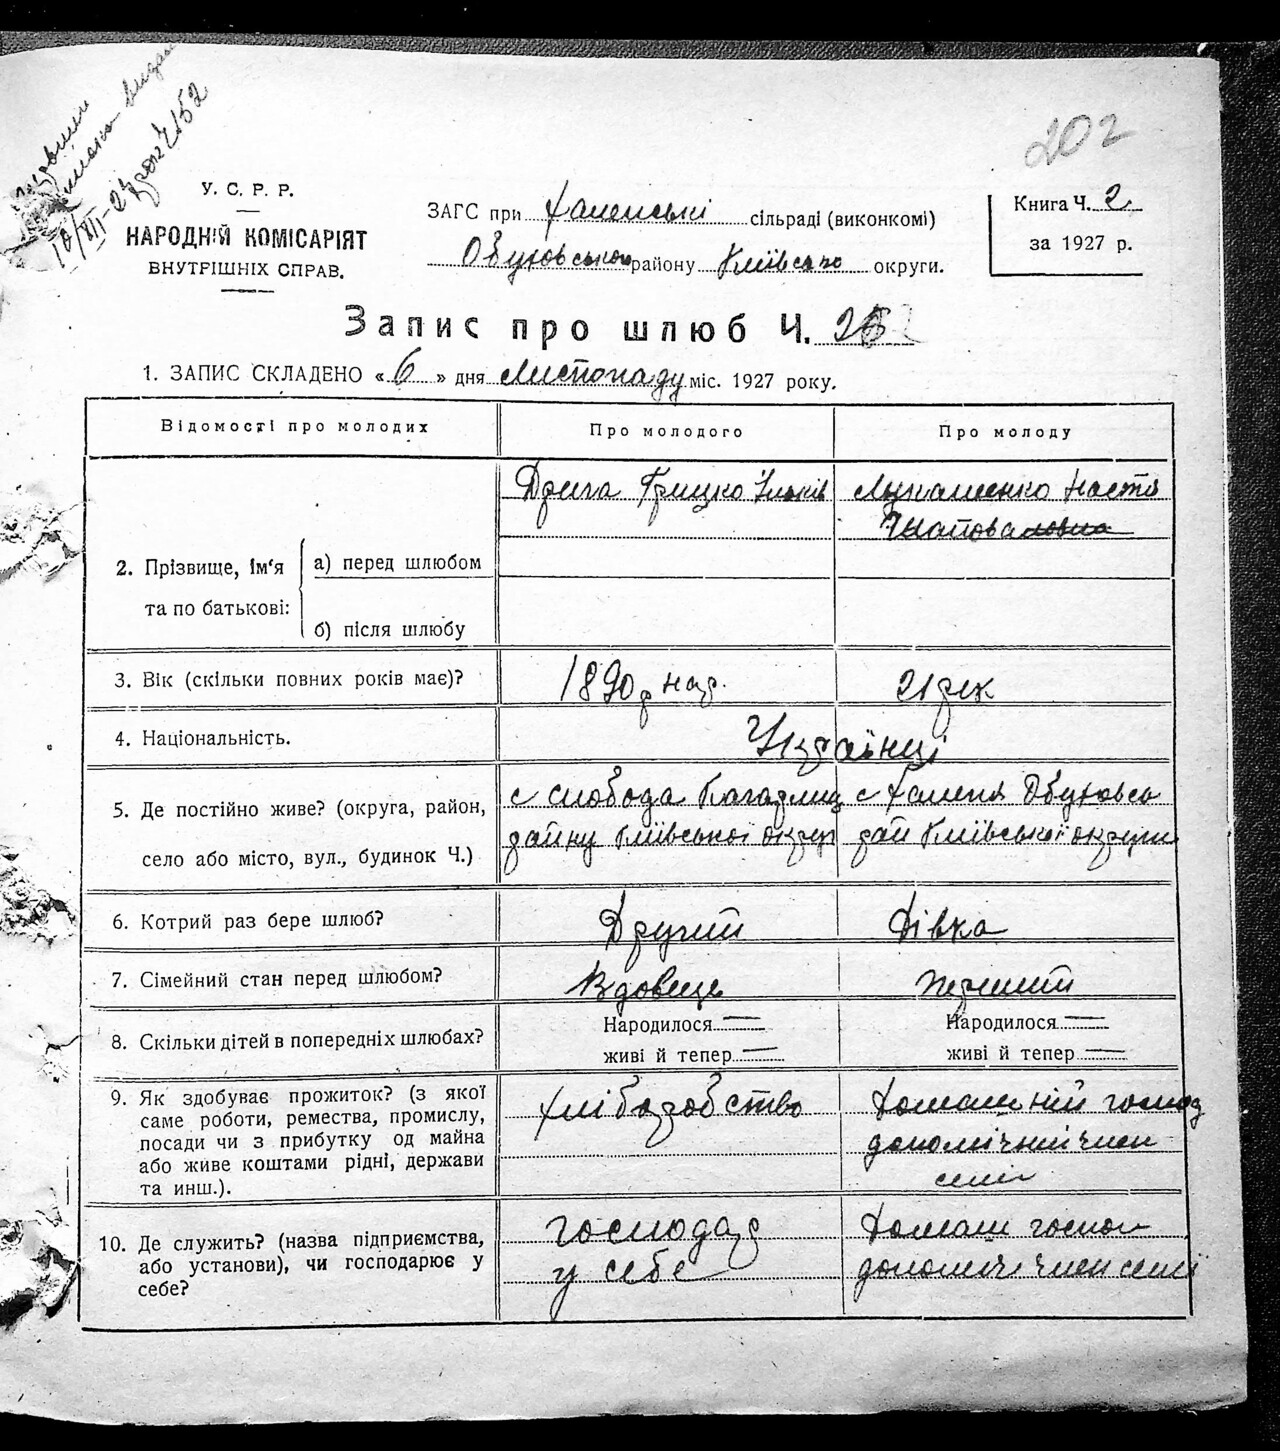 202
У. С. Р. Р.
НАРОДНІЙ КОМІСАРІЯТ
ВНУТРІШНІХ СПРАВ.
ЗАГС при Халепські сільраді (виконкомі)
Обуховського району Київсько округи.
Книга Ч. 2
за 1927 р.
Запис про шлюб Ч.
1. ЗАПИС СКЛАДЕНО « 6 » дня Листопаду міс. 1927 року.
Відомості про молодих
Про молодого
Про молоду
2. Прізвище, ім'я та по батькові:
а) перед шлюбом
б) після шлюбу
Дрига Грицько
Лукашенко Настя
3. Вік (скільки повних років має)?
1890 р нар.
21 рік
4. Національність.
Українці
5. Де постійно живе? (округа, район,
село або місто, вул., будинок Ч.)
с слобода Кагарлиц
району Київської округи
с Халепя Обуховсь
рай Київської округи
6. Котрий раз бере шлюб?
Другий
Дівка
7. Сімейний стан перед шлюбом?
Вдовець
Перший
8. Скільки дітей в попередніх шлюбах?
Народилося —
живі й тепер —
Народилося —
живі й тепер —
9. Як здобуває прожиток? (з якої
саме роботи, ремества, промислу,
посади чи з прибутку од майна
або живе коштами рідні, держави
та инш.).
хліборобство
Домашній господ
допомічний член
семії
10. Де служить? (назва підприємства,
або установи), чи господарює у
себе?
господар
у себе
Домаш госпо
допоміч член семії